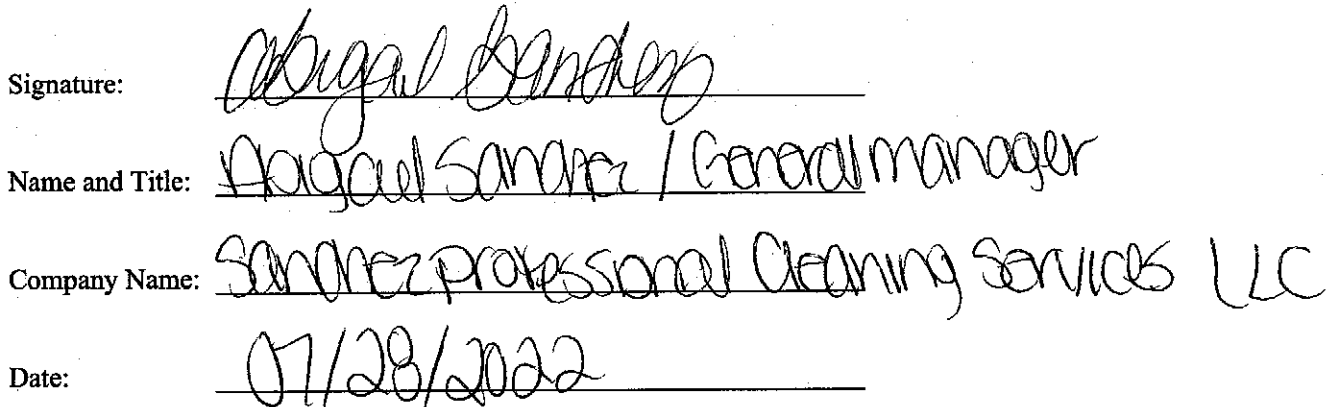 Signature: Abigail Sanchez
Name and Title: Abigail Sanchez / General manager
Company Name: Sanchez professional Cleaning Services LLC
Date: 07/28/2022